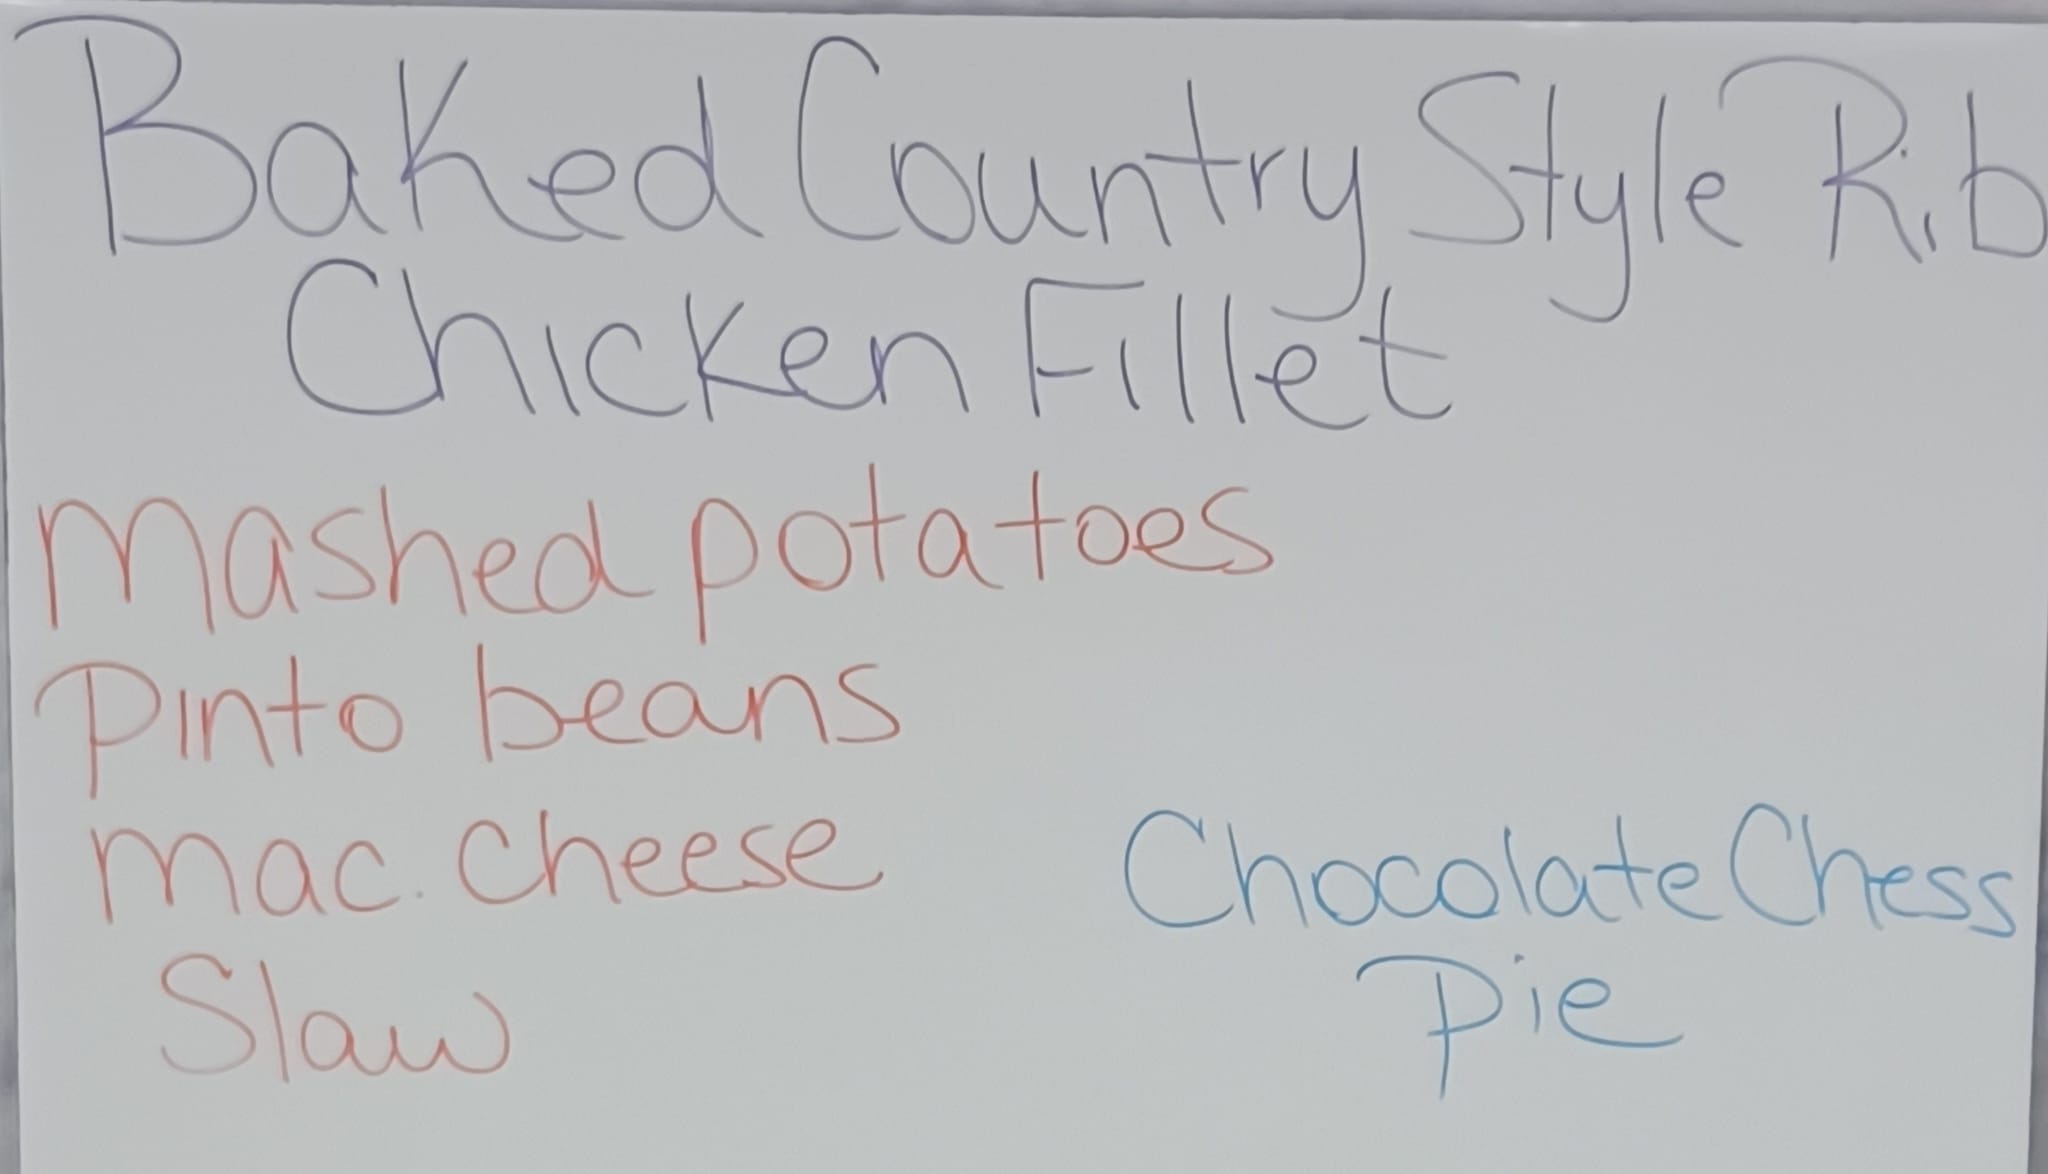 Baked Country Style Rib
Chicken Fillet
Mashed potatoes
Pinto beans
mac. cheese
Slaw
Chocolate Chess
Pie